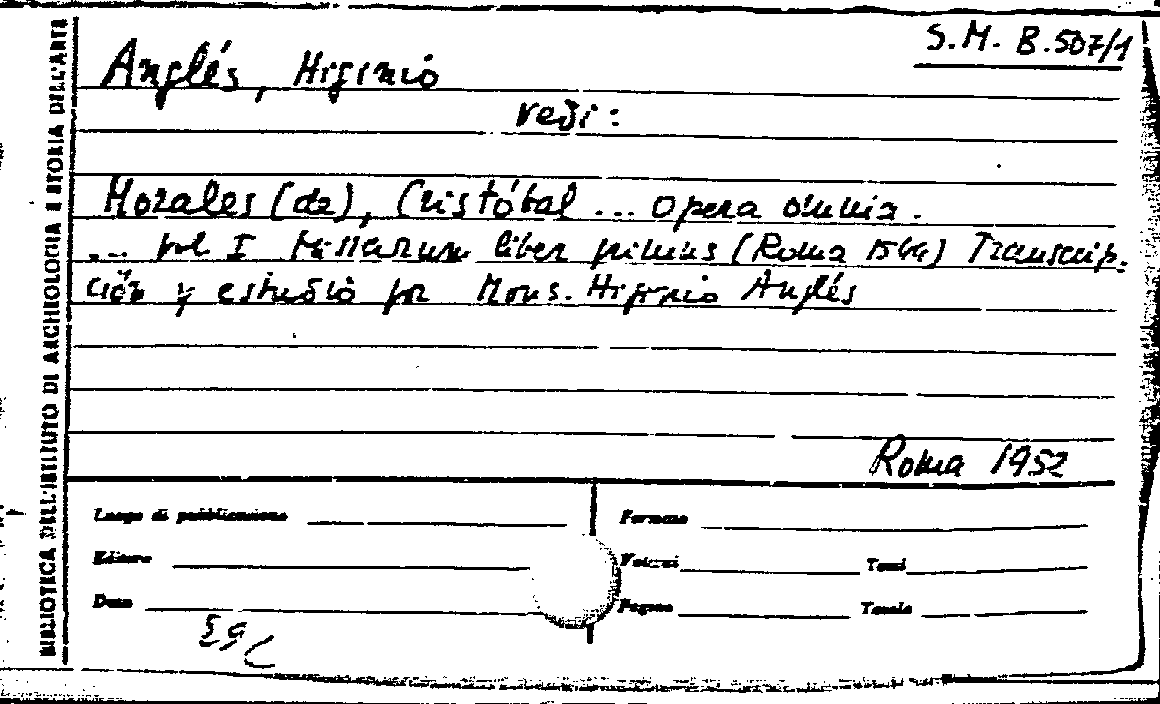 S.M. B.507/1
Anglés, Higinio
vedi:
Morales (de), Cristóbal ... Opera omnia.
... vol I Missarum liber primus (Roma 1544) Transcrip-
ción y estudio por Mons. Higinio Anglés
Roma 1952
BIBLIOTECA DELL'ISTITUTO DI ARCHEOLOGIA E STORIA DELL'ARTE
Luogo di pubblicazione
Editore
Data
Formato
Volumi Tomi
Pagine Tavole